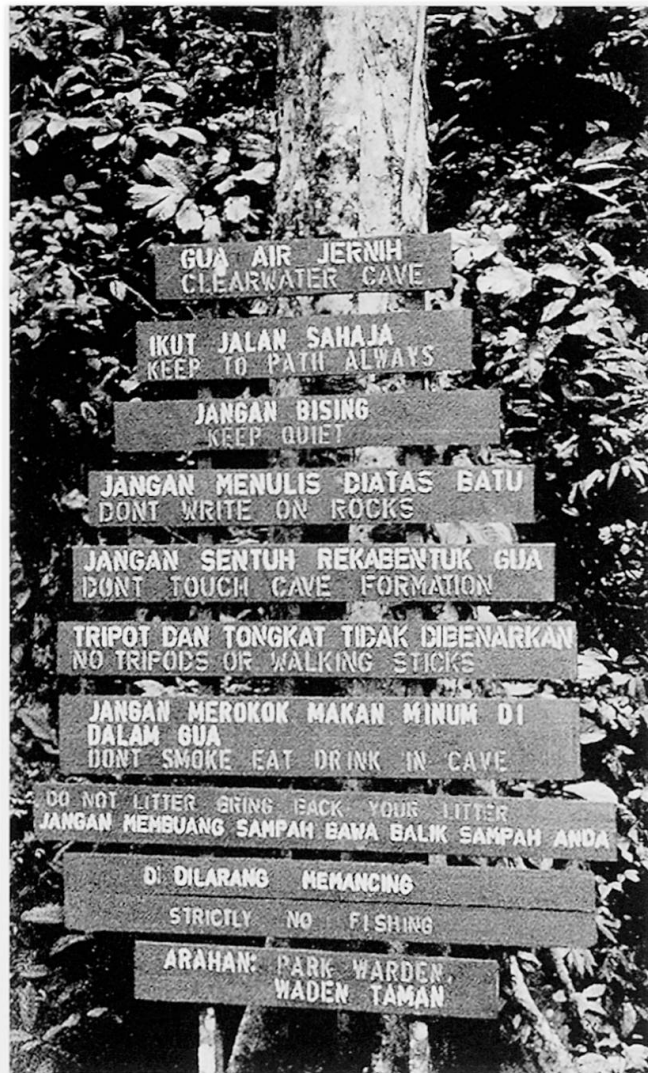 GUA AIR JERNIH
CLEARWATER CAVE
IKUT JALAN SAHAJA
KEEP TO PATH ALWAYS
JANGAN BISING
KEEP QUIET
JANGAN MENULIS DIATAS BATU
DONT WRITE ON ROCKS
JANGAN SENTUH REKABENTUK GUA
DONT TOUCH CAVE FORMATION
TRIPOT DAN TONGKAT TIDAK DIBENARKAN
NO TRIPODS OR WALKING STICKS
JANGAN MEROKOK MAKAN MINUM DI
DALAM GUA
DONT SMOKE EAT DRINK IN CAVE
DO NOT LITTER BRING BACK YOUR LITTER
JANGAN MEMBUANG SAMPAH BAWA BALIK SAMPAH ANDA
DI DILARANG MEMANCING
STRICTLY NO FISHING
ARAHAN: PARK WARDEN,
WADEN TAMAN